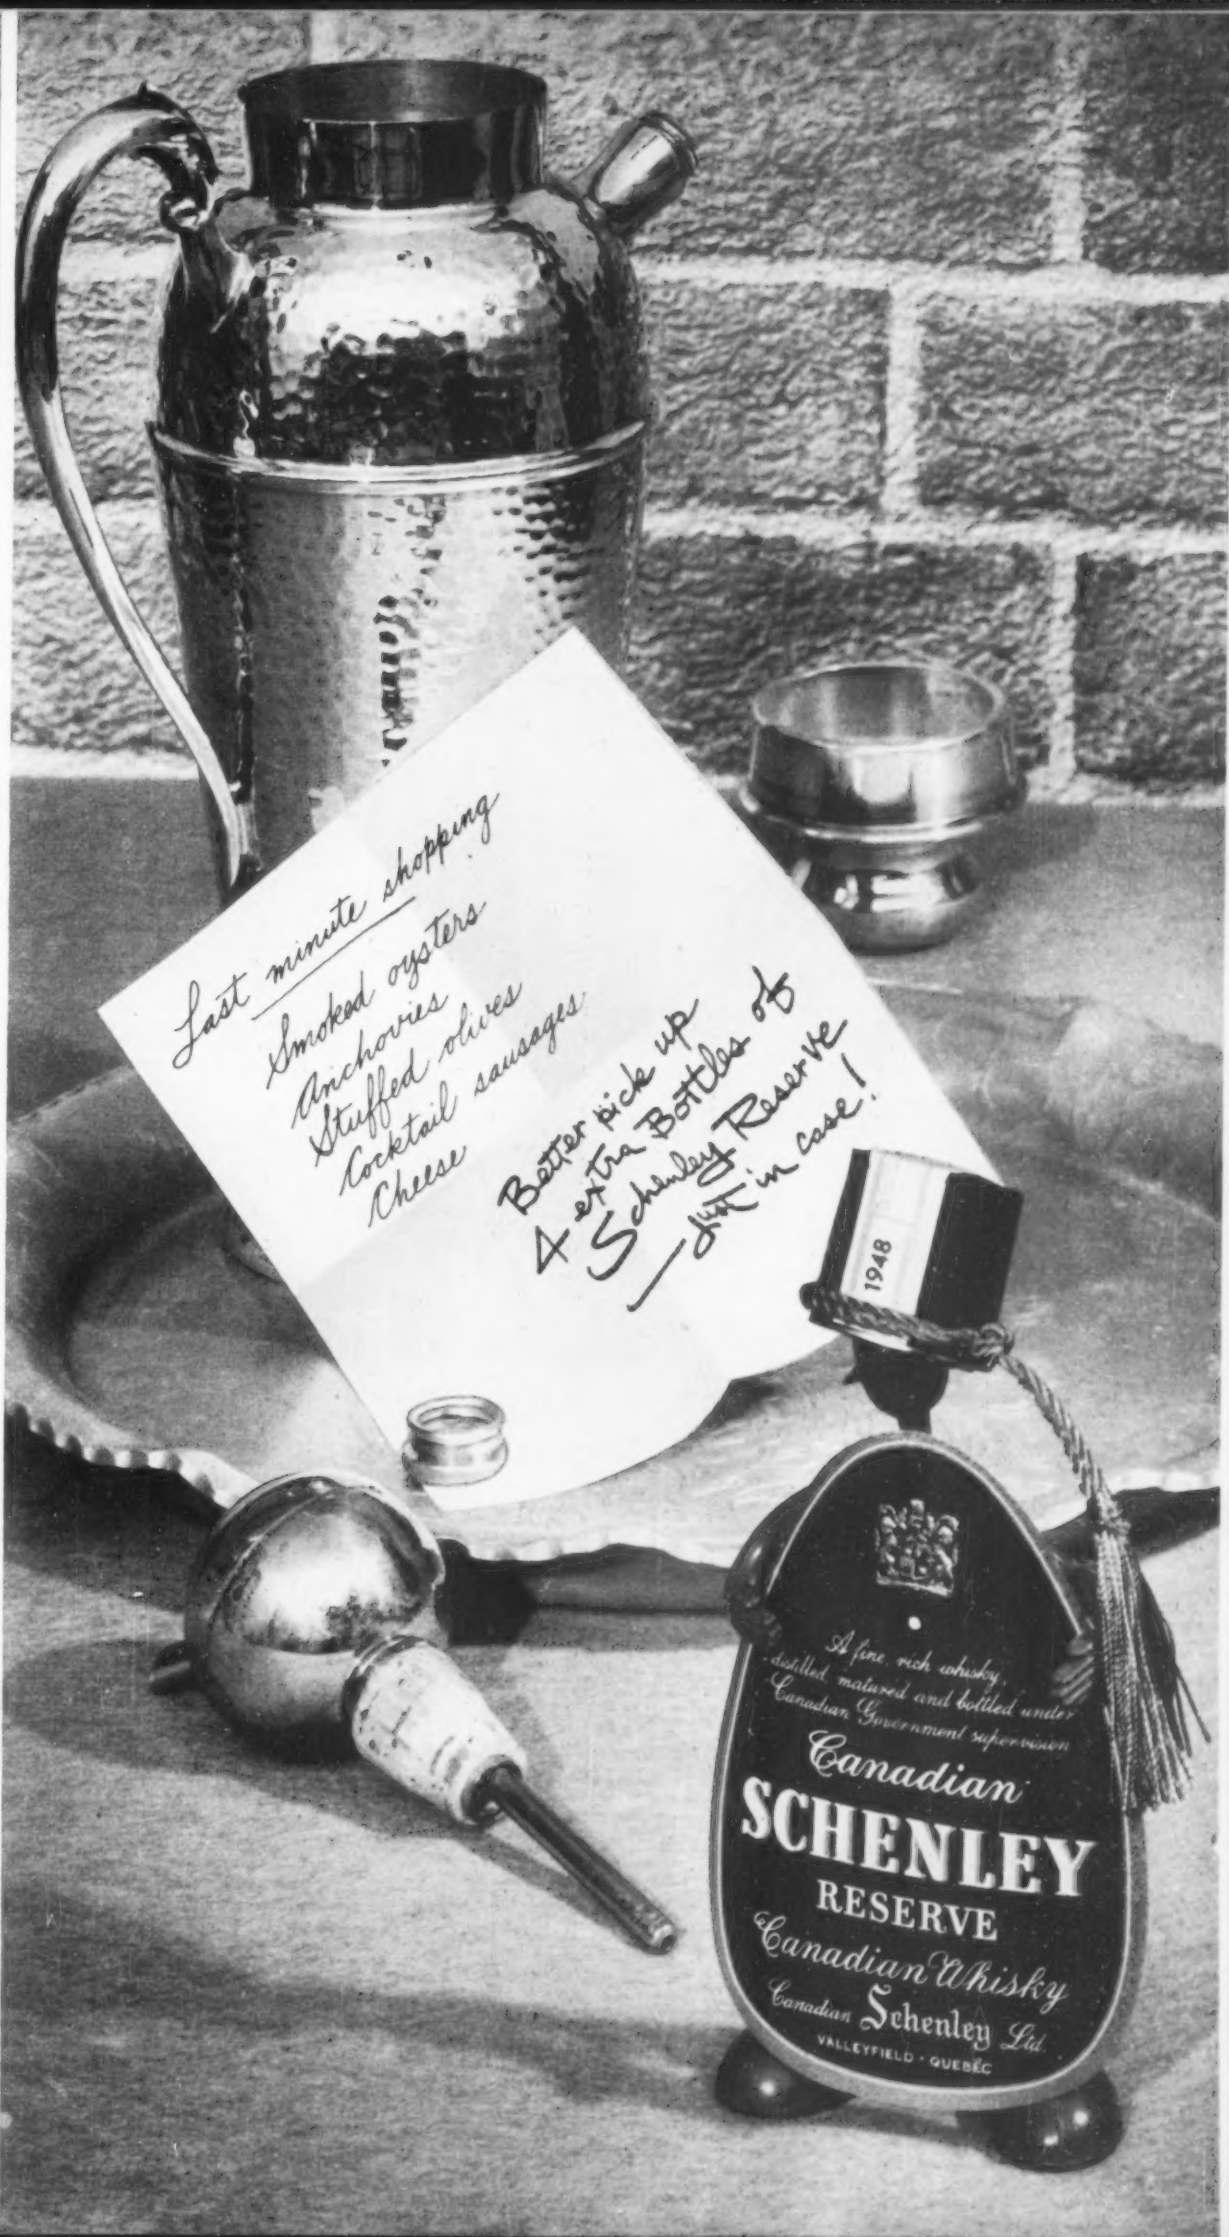 Last minute shopping
Smoked oysters
Anchovies
Stuffed olives
Cocktail sausages
Cheese
Better pick up
4 extra Bottles of
Schenley Reserve
—just in case!
1948
A fine, rich whisky,
distilled, matured and bottled under
Canadian Government supervision
Canadian
SCHENLEY
RESERVE
Canadian Whisky
Canadian Schenley Ltd.
VALLEYFIELD · QUEBEC